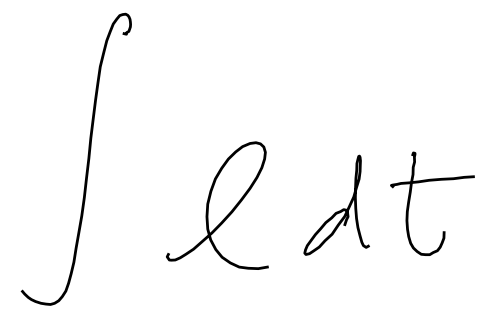 ∫ ℓ dt